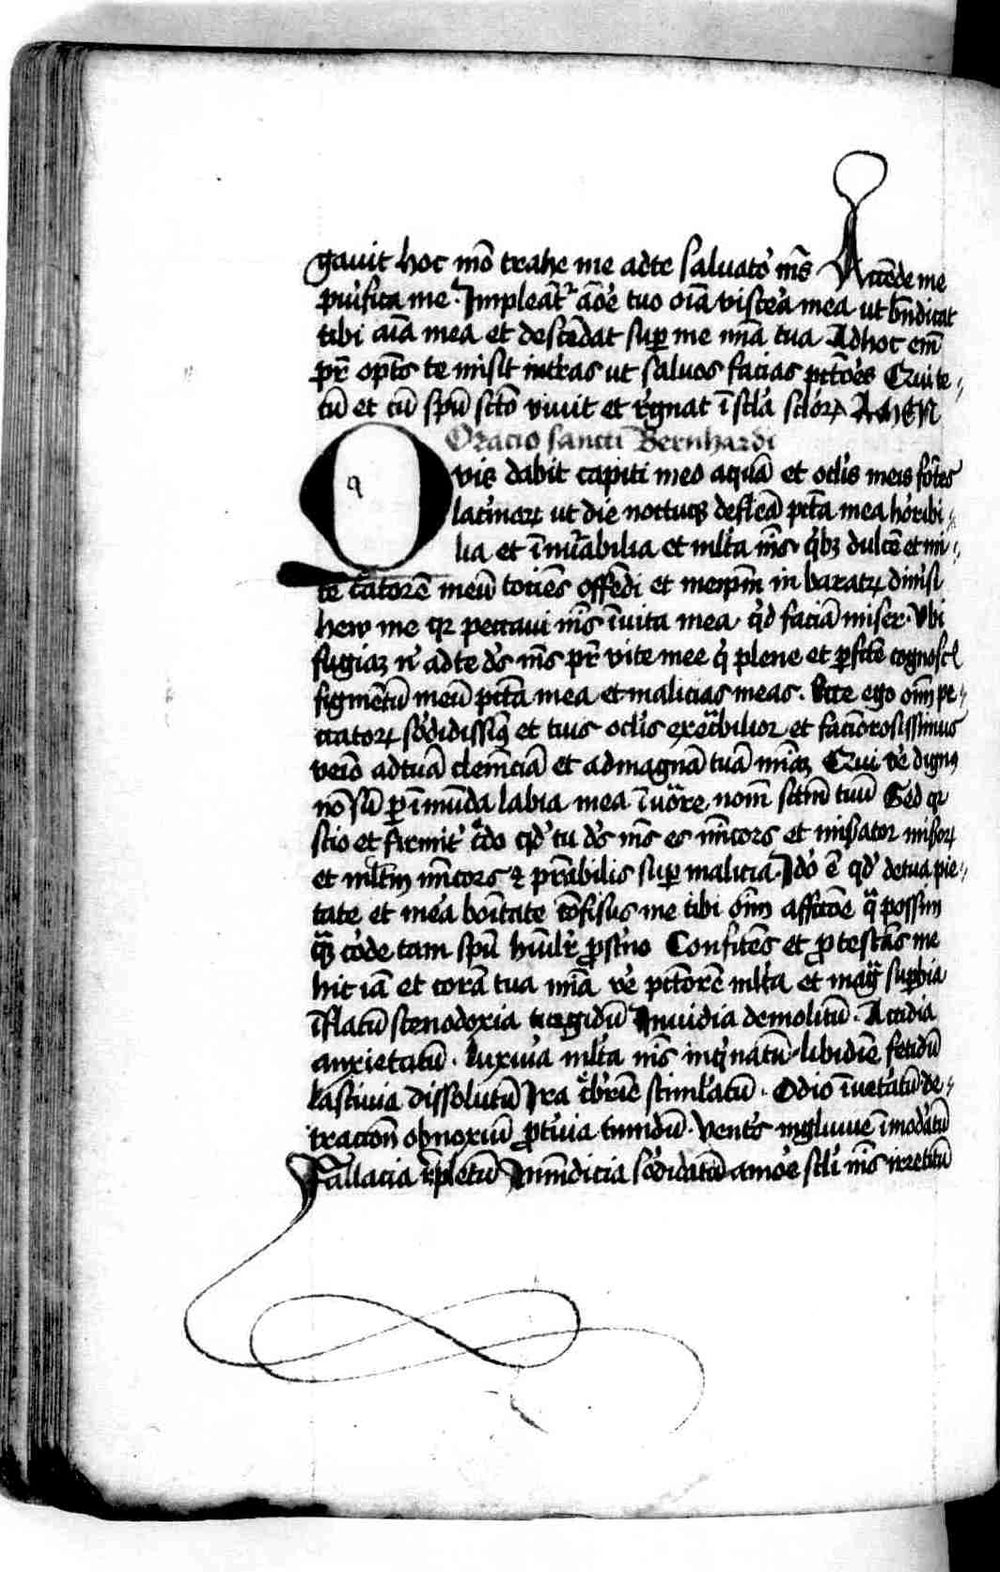 gauit hoc mō trahe me adte saluato᷑ mīs Accēde me
puifica me · Impleāt᷑ aōe tuo oīa viscea mea ut bn̄dicat
tibi aīa mea et descēdat sup me mīa tua Adhoc em̄
pr̄ opt̄s te misit intras ut saluos facias pct̄oēs Qui te
cū et cū spū sctō viuit et rēgnat ī scl̄a sclōꝝ AMEN
Oracio sancti Bernhardi
Quis dabit capiti meo aquā et oclīs meis fōtes
lacīmaꝝ ut die noctuqꝫ defleā pct̄a mea horībi
lia et īnūabilia et mlt̄a nīs qb̄ꝫ dulcē et mi
te catorē meū tociēs offēdi et meipm̄ in baratꝝ dimisi
hew me qꝛ peccaui nīs īuita mea · qd̄ faciā miser · Vbi
fugiaꝫ n̄ adte ds̄ ms̄ pr̄ vite mee q̄ plene et pfcē cognoscꝭ
figmētū meū pct̄a mea et malicias meas · Ecce ego oīm pe
ccatoꝝ sōdidissiꝰ et tuis oclīs exēcbilior et facīorosissimus
venio adtuā clemēciā et admagnā tuā mīaꝫ Qui vē dignꝰ
nō sū p īmūda labia mea īuōre nom̄ sctm̄ tuū Sed qꝛ
scio et firmit᷑ cdo qd̄ tu ds̄ ms̄ es mīcors et misator misoꝝ
et mltm̄ mīcors ⁊ prābilis sup malicia · Idō ē qd̄ detua pie
tate et mēa boītate cōfisus me tibi oīm affcōe qͣ possum
qͣꝫ cōde tam spū hūilr̄ pstn̄o Confitēs et ptestās me
hic iā et corā tua mīa vē pctōrē mlt̄a et mag᷑ supbia
īflatū scenodoxia turgidū Inuidia demolitū · Accidia
anxietatū · Luxuīa mlt̄a nīs inqn̄atū · libidiē fetidū
lasciuia dissolutū Ira cb̄rīe stimlātū · Odio īuetātū · de
tractiōn obnoxiū pt̄uia tumidū · Vents ingluuie īmodātū
Fallacia rēpletū Inm̄dicia sōdidatū amoē scl̄i nīs irretitū